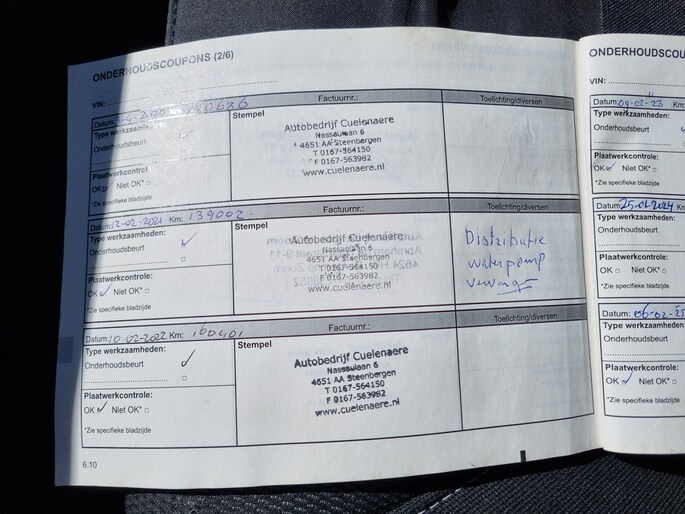 ONDERHOUDSCOUPONS (2/6)
VIN:
Datum: Km:
Type werkzaamheden:
Onderhoudsbeurt
Plaatwerkcontrole:
OK Niet OK*
*Zie specifieke bladzijde
Factuurnr.:
Stempel
Autobedrijf Cuelenaere
Nassaulaan 6
4651 AA Steenbergen
T 0167-564150
F 0167-563982
www.cuelenaere.nl
Toelichting/diversen
Datum: 12-02-2021 Km: 139002
Type werkzaamheden:
Onderhoudsbeurt
Plaatwerkcontrole:
OK Niet OK*
*Zie specifieke bladzijde
Factuurnr.:
Stempel
Autobedrijf Cuelenaere
Nassaulaan 6
4651 AA Steenbergen
T 0167-564150
F 0167-563982
www.cuelenaere.nl
Toelichting/diversen
Distributie
waterpomp
Datum: 10-02-2022 Km: 160401
Type werkzaamheden:
Onderhoudsbeurt
Plaatwerkcontrole:
OK Niet OK*
*Zie specifieke bladzijde
Factuurnr.:
Stempel
Autobedrijf Cuelenaere
Nassaulaan 6
4651 AA Steenbergen
T 0167-564150
F 0167-563982
www.cuelenaere.nl
Toelichting/diversen
6.10
ONDERHOUDSCOU
VIN:
Datum: 09-02-23 Km:
Type werkzaamheden:
Onderhoudsbeurt
Plaatwerkcontrole:
OK Niet OK*
*Zie specifieke bladzijde
Datum: 25-01-2024 Km
Type werkzaamheden:
Onderhoudsbeurt
Plaatwerkcontrole:
OK Niet OK*
*Zie specifieke bladzijde
Datum: 06-02-25
Type werkzaamheden:
Onderhoudsbeurt
Plaatwerkcontrole:
OK Niet OK*
*Zie specifieke bladzijde